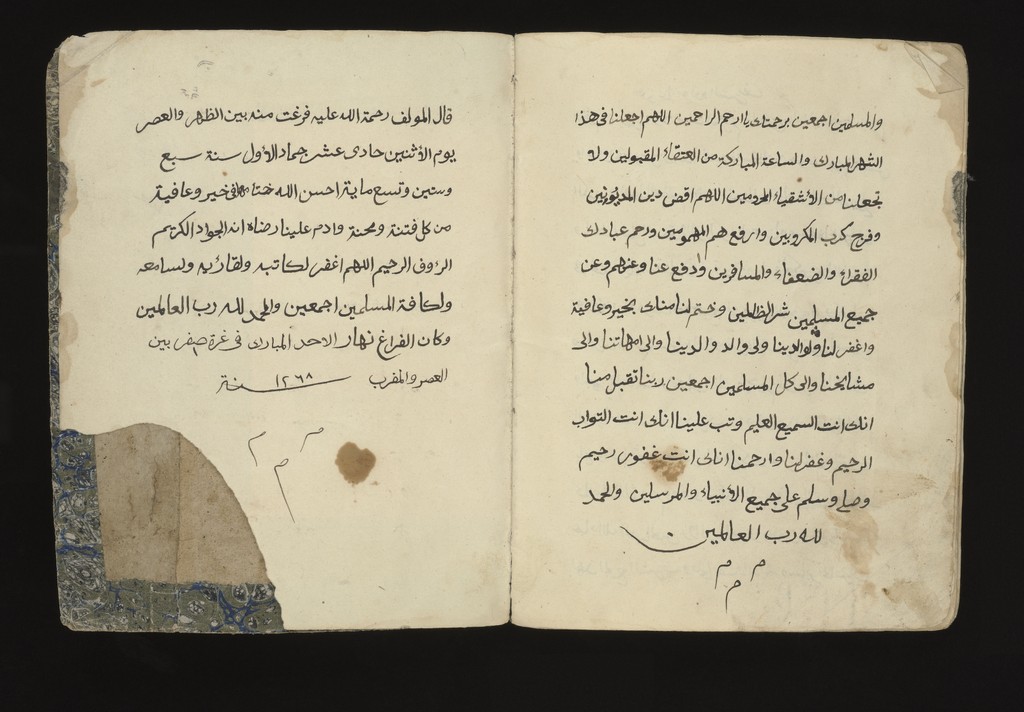 والمسلمين اجمعين برحمتك يا ارحم الراحمين اللهم اجعلنا في هذا
الشهر المبارك والساعة المباركة من العتقاء المقبولين ولا
تجعلنا من الأشقياء المحرومين اللهم اقض دين المديونين
وفرج كرب المكروبين وارفع هم المهمومين ورحم عبادك
الفقراء والضعفاء والمسافرين وادفع عنا وعنهم وعن
جميع المسلمين شر الظالمين وختم لنا منك بخير وعافية
واغفر لنا ولوالدينا ولى والد والدينا والى امهاتنا والى
مشايخنا والى كل المسلمين اجمعين ربنا تقبل منا
انك انت السميع العليم وتب علينا انك انت التواب
الرحيم وغفر لنا وارحمنا انك انت غفور رحيم
وصلى وسلم على جميع الأنبياء والمرسلين والحمد
لله رب العالمين
م م م
قال المولف رحمة الله عليه فرغت منه بين الظهر والعصر
يوم الأثنين حادى عشر جماد الأول سنة سبع
وستين وتسع ماية احسن الله ختامها في خير وعافية
من كل فتنة ومحنة وادم علينا رضاه انه الجواد الكريم
الرؤف الرحيم اللهم اغفر لكاتبه ولقارئه ولسامعه
ولكافة المسلمين اجمعين والحمد لله رب العالمين
وكان الفراغ نهار الاحد المبارك في غرة صفر بين
العصر والمغرب ١٢٦٨ سنة
م م م